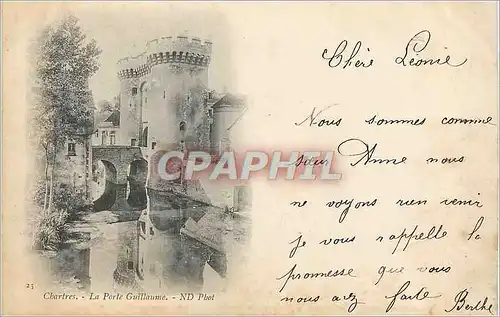 Chère Léonie
Nous sommes comme
sœur Anne nous
ne voyons rien venir
je vous rappelle la
promesse que vous
nous avez faite Berthe
CPAPHIL
25
Chartres. - La Porte Guillaume. - ND Phot